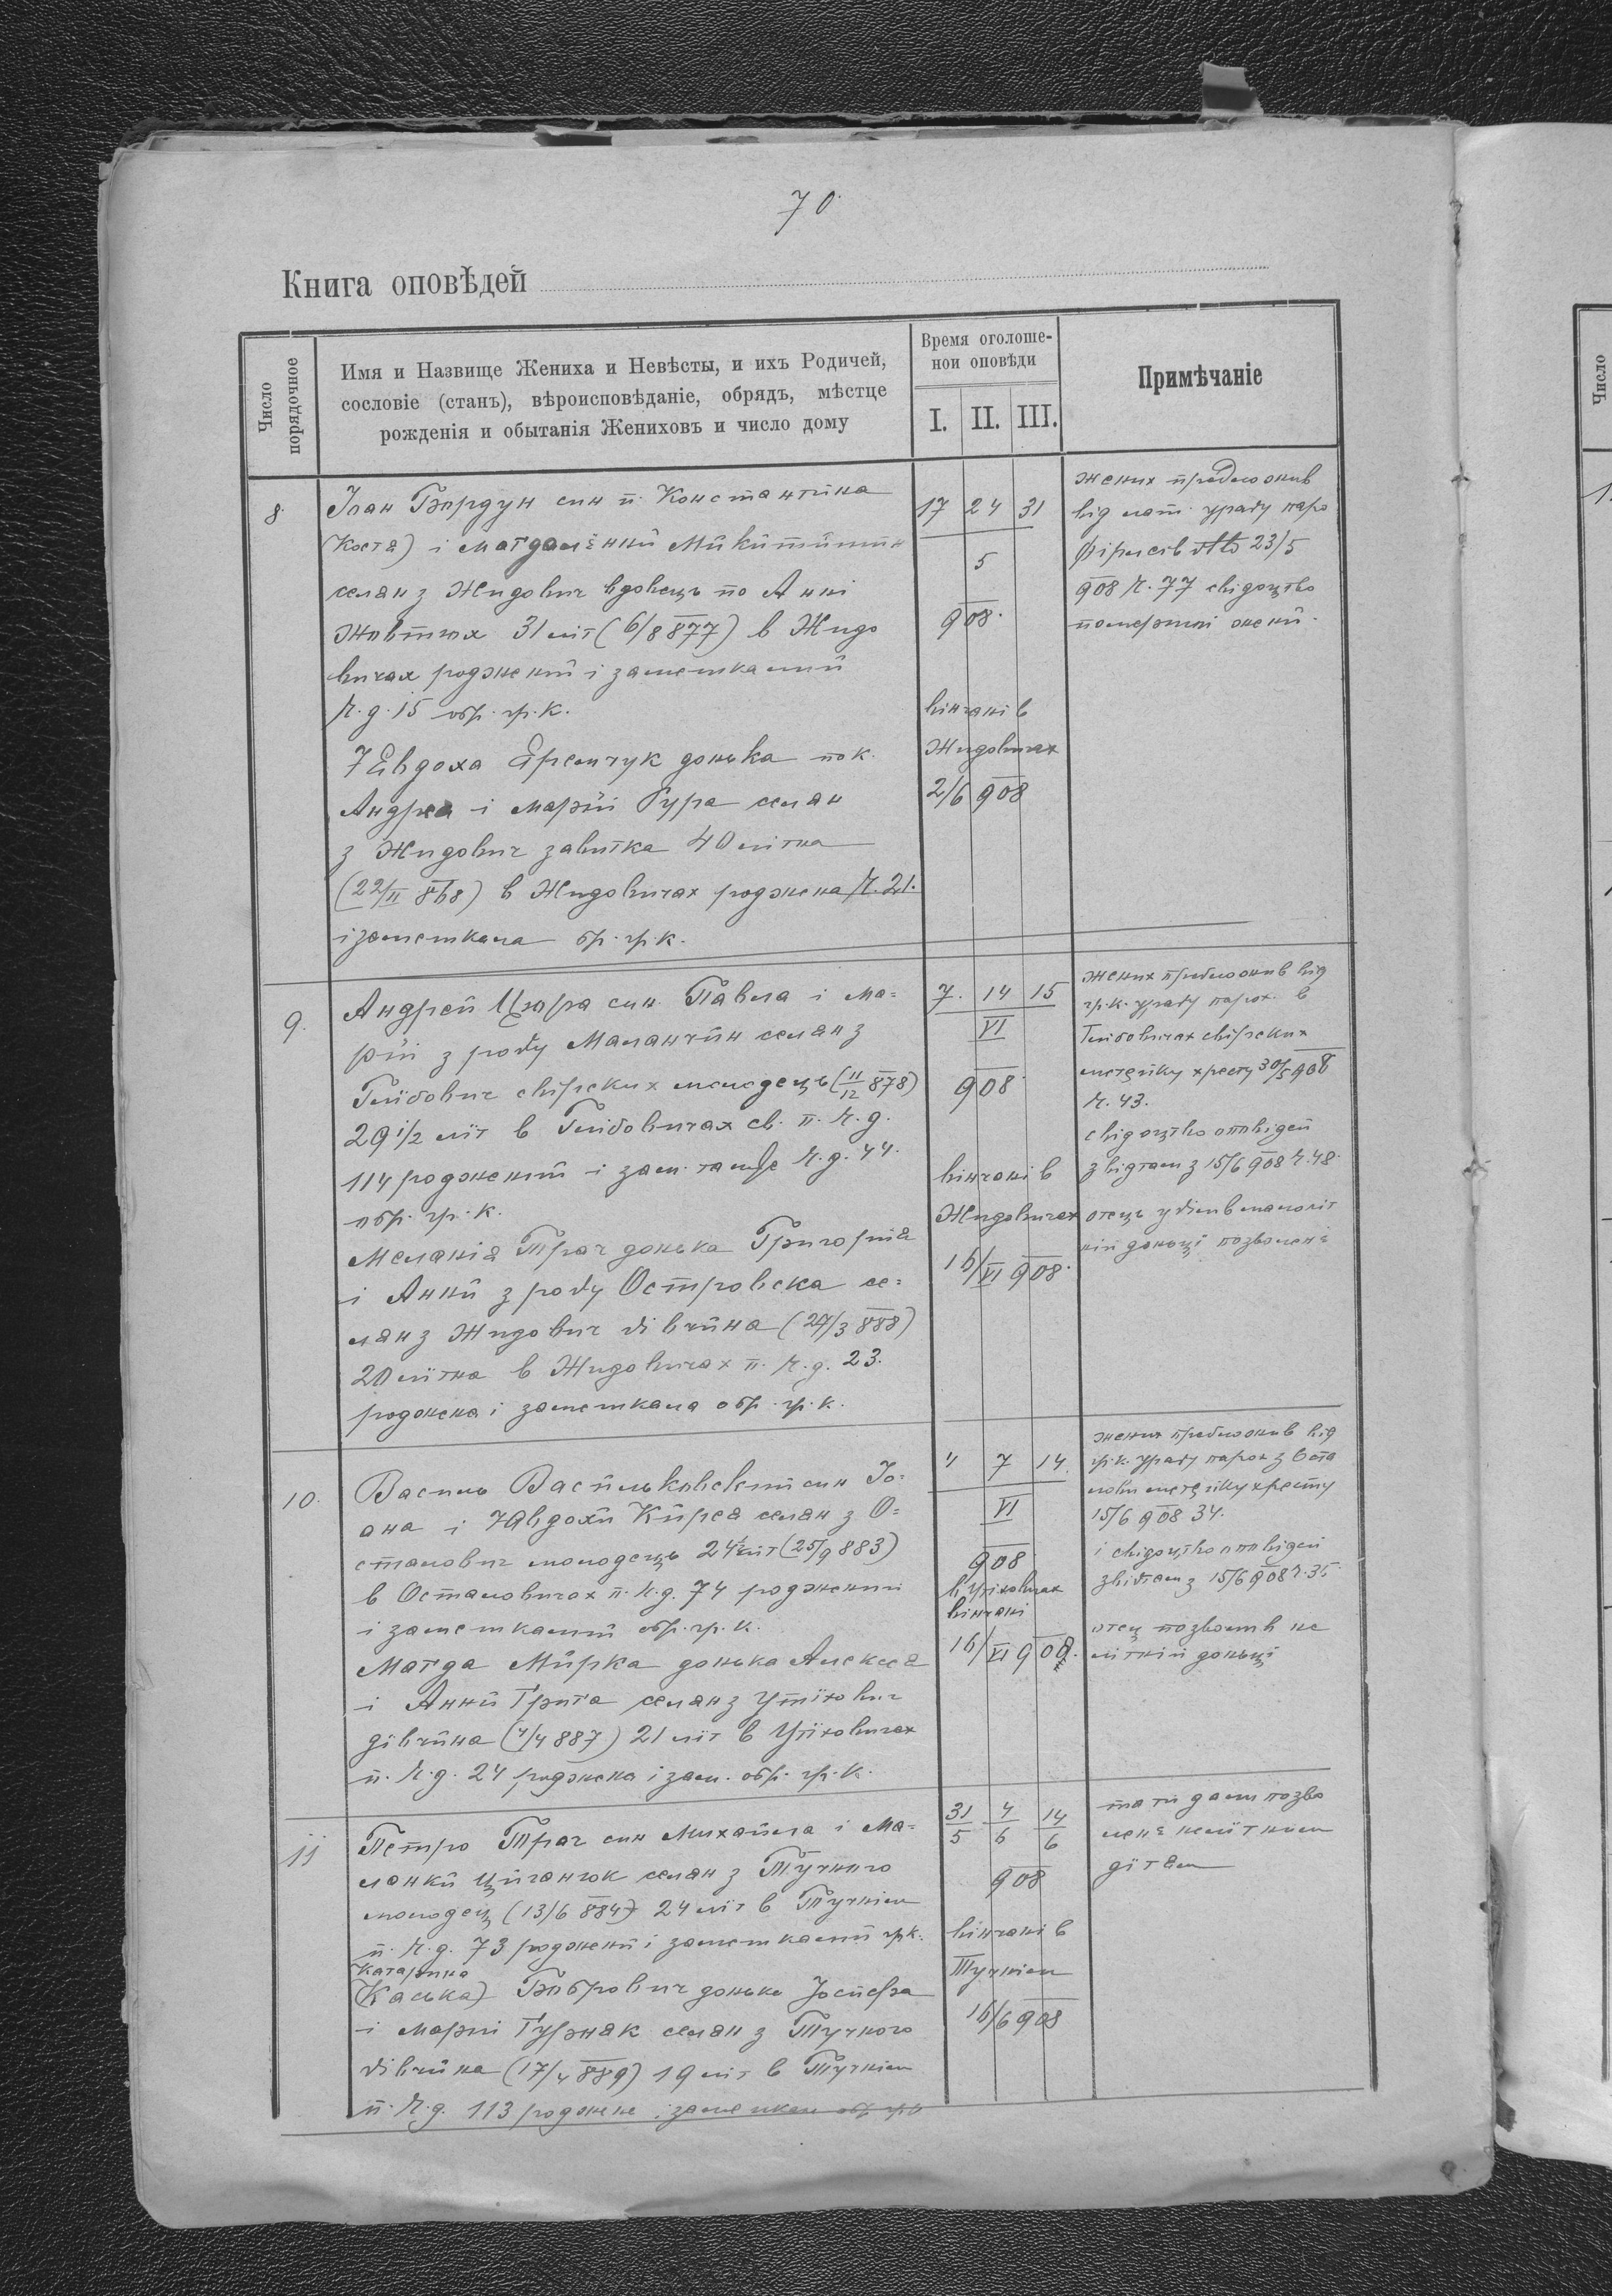 70
Книга оповѣдей
Число порядочное
Имя и Назвище Жениха и Невѣсты, и ихъ Родичей,
сословіе (станъ), вѣроисповѣданіе, обрядъ, мѣстце
рожденія и обытанія Жениховъ и число дому
Время оголоше-
нои оповѣди
I. II. III.
Примѣчаніе
8.
Іоан Бордун син п. Константина
(Костя) і Магдалени
селян з Жидович вдовець по Анні
Жовтюх 31 літ (6/8 877) в Жидо
вичах роджений і замешкалий
ч. д. 15 обр. гр. к.
Євдоха Яремчук донька пок.
Андрея і Марії Гура селян
з Жидович завитка 40 літна
(22/II 868) в Жидовичах роджена ч. 21.
і замешкала обр. гр. к.
17 24 31
5
908.
вінчані в
Жидовичах
2/6 908
жених предложив
від лат. уряду паро
Фірлеїв dto 23/5
908 ч. 77 свідоцтво
померлої жени.
9.
Андрей Цюра син Павла і Ма=
рії з роду Маланчин селян з
Глібович свірских молодець (11/12 878)
29 1/2 літ в Глібовичах св. п. ч. д.
114 роджений і зам. тамже ч. д. 44.
обр. гр. к.
Меланія Трач донька Григория
і Анни з роду Островска се=
лян з Жидович дівчина (24/3 888)
20 літна в Жидовичах п. ч. д. 23.
роджена і замешкала обр. гр. к.
7. 14 15
VI
908.
вінчані в
Жидовичах
16/VI 908.
жених предложив від
гр. к. уряду парох. в
Глібовичах свірских
метрику хресту 30/5 908
ч. 43.
свідоцтво оповідей
звідтам з 15/6 908 ч. 48.
отець уділив малоліт
ній доньці позволенє
10.
Василь Васильковский син Іо=
ана і Явдохи Кирея селян з О=
сталович молодець 24 літ (25/9 883)
в Осталовичах п. ч. д. 74 роджений
і замешкалий обр. гр. к.
Магда Мирка донька Алексея
і Анни Грига селян з Утіхович
дівчина (4/4 887) 21 літ в Утіховичах
п. ч. д. 24 роджена і зам. обр. гр. к.
" 7 14.
VI
908
в Утіховичах
вінчані
16/VI 908.
жених предложив від
гр. к. уряду парох з Оста
лович метрику хресту
15/6 908 34.
і свідоцтво оповідей
звідтам з 15/6 908 ч. 35.
отец позволив не
літній доньці
11
Петро Трач син Михайла і Ма=
ланки Циганюк селян з Тучного
молодец (13/6 884) 24 літ в Тучнім
п. ч. д. 73 роджений і замешкалий гр к.
Катарина
(Каська) Бобрович донька Йосифа
і Марії Гурняк селян з Тучного
дівчина (17/4 889) 19 літ в Тучнім
п. ч. д. 113 роджена і замешкала обр. гр. к
31/5 4/6 14/6
908
вінчані в
Тучнім
16/6 908
тати дали позво
ленє нелітним
дітям
Число